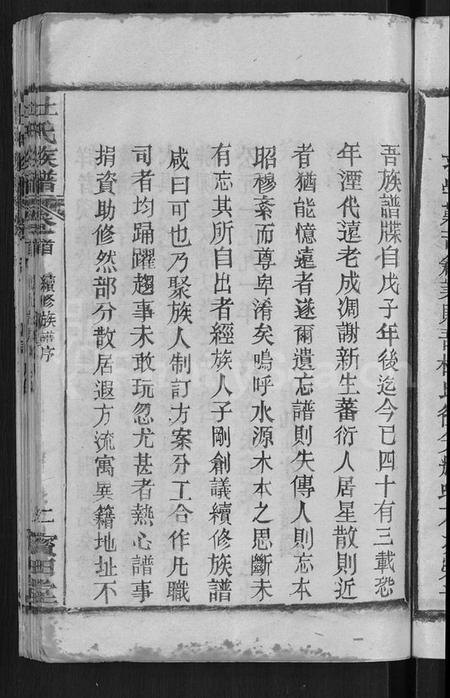 吾族譜牒自戊子年後迄今已四十有三載恐
年湮代遠老成凋謝新生蕃衍人居星散則近
者猶能憶遠者遂爾遺忘譜則失傳人則忘本
昭穆紊而尊卑淆矣嗚呼水源木本之思斷未
有忘其所自出者經族人子剛創議續修族譜
咸曰可也乃聚族人制訂方案分工合作凡職
司者均踊躍趨事未敢玩忽尤甚者熱心譜事
捐資助修然部分散居遐方流寓異籍地址不
杜氏族譜
卷首
續修族譜序
二
寶田堂